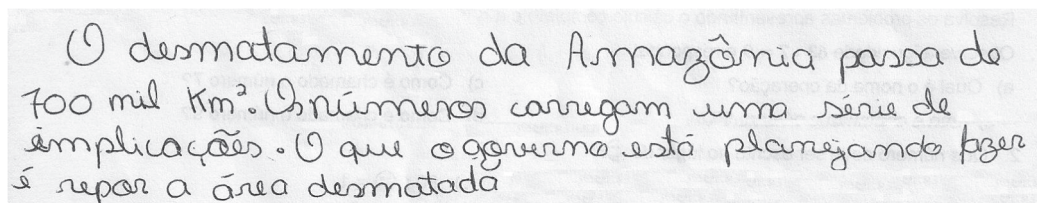 O desmatamento da Amazônia passa de
700 mil Km². Os números carregam uma série de
implicações. O que o governo está planejando fazer
é repor a área desmatada